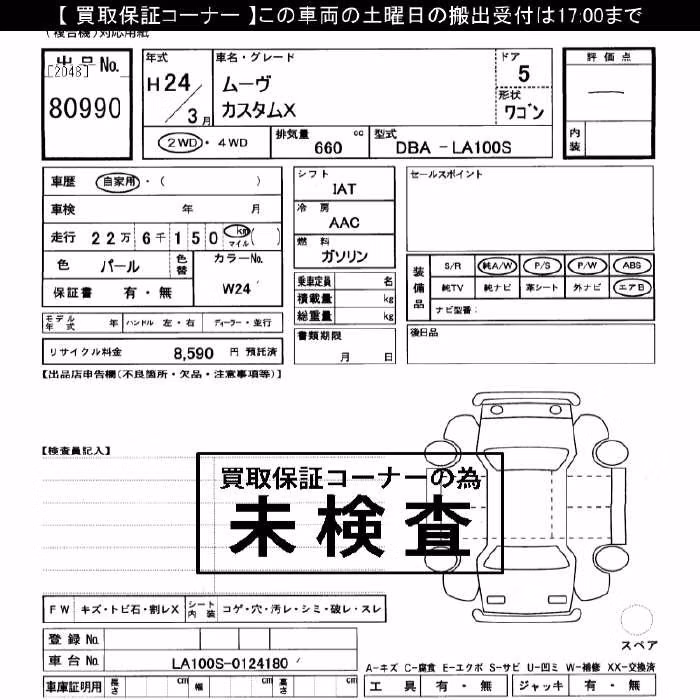 【 買取保証コーナー 】この車両の土曜日の搬出受付は17:00まで
(複合機)対応用紙
出品 No.
[2048]
80990
年式
H 24 / 3 月
車名・グレード
ムーヴ
カスタムX
ドア
5
形状
ワゴン
2WD ・ 4WD
排気量 cc
660
型式
DBA - LA100S
評価点
内装
車歴 自家用 ・ ( )
車検 年 月
走行 22万 6千 150 km マイル ( )
色 パール 色替 カラーNo.
W24
保証書 有 ・ 無
シフト
IAT
冷房
AAC
燃料
ガソリン
乗車定員 名
積載量 kg
総重量 kg
セールスポイント
装備品
S/R 純A/W P/S P/W ABS
純TV 純ナビ 革シート 外ナビ エアB
ナビ型番:
モデル年式 年 ハンドル 左・右 ディーラー・並行
書類期限
月 日
後日品
リサイクル料金 8,590 円 預託済
【出品店申告欄(不良箇所・欠品・注意事項等)】
【検査員記入】
買取保証コーナーの為
未検査
FW キズ・トビ石・割レX シート内装 コゲ・穴・汚レ・シミ・破レ・スレ
登録 No.
車台 No. LA100S-0124180
スペア
A-キズ C-腐食 E-エクボ S-サビ U-凹ミ W-補修 XX-交換済
車庫証明用 長さ cm 幅 cm 高さ cm
工具 有 ・ 無 ジャッキ 有 ・ 無